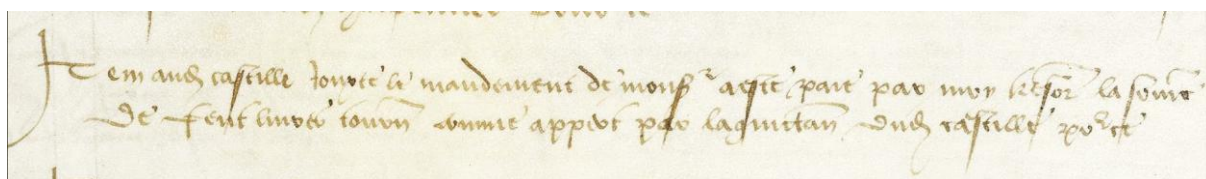 Item aud castille jouxte le mandement de monsr a este paie par moy tresor la somme
de cent livres tourn comme appert par la quittan dud castille pour ce